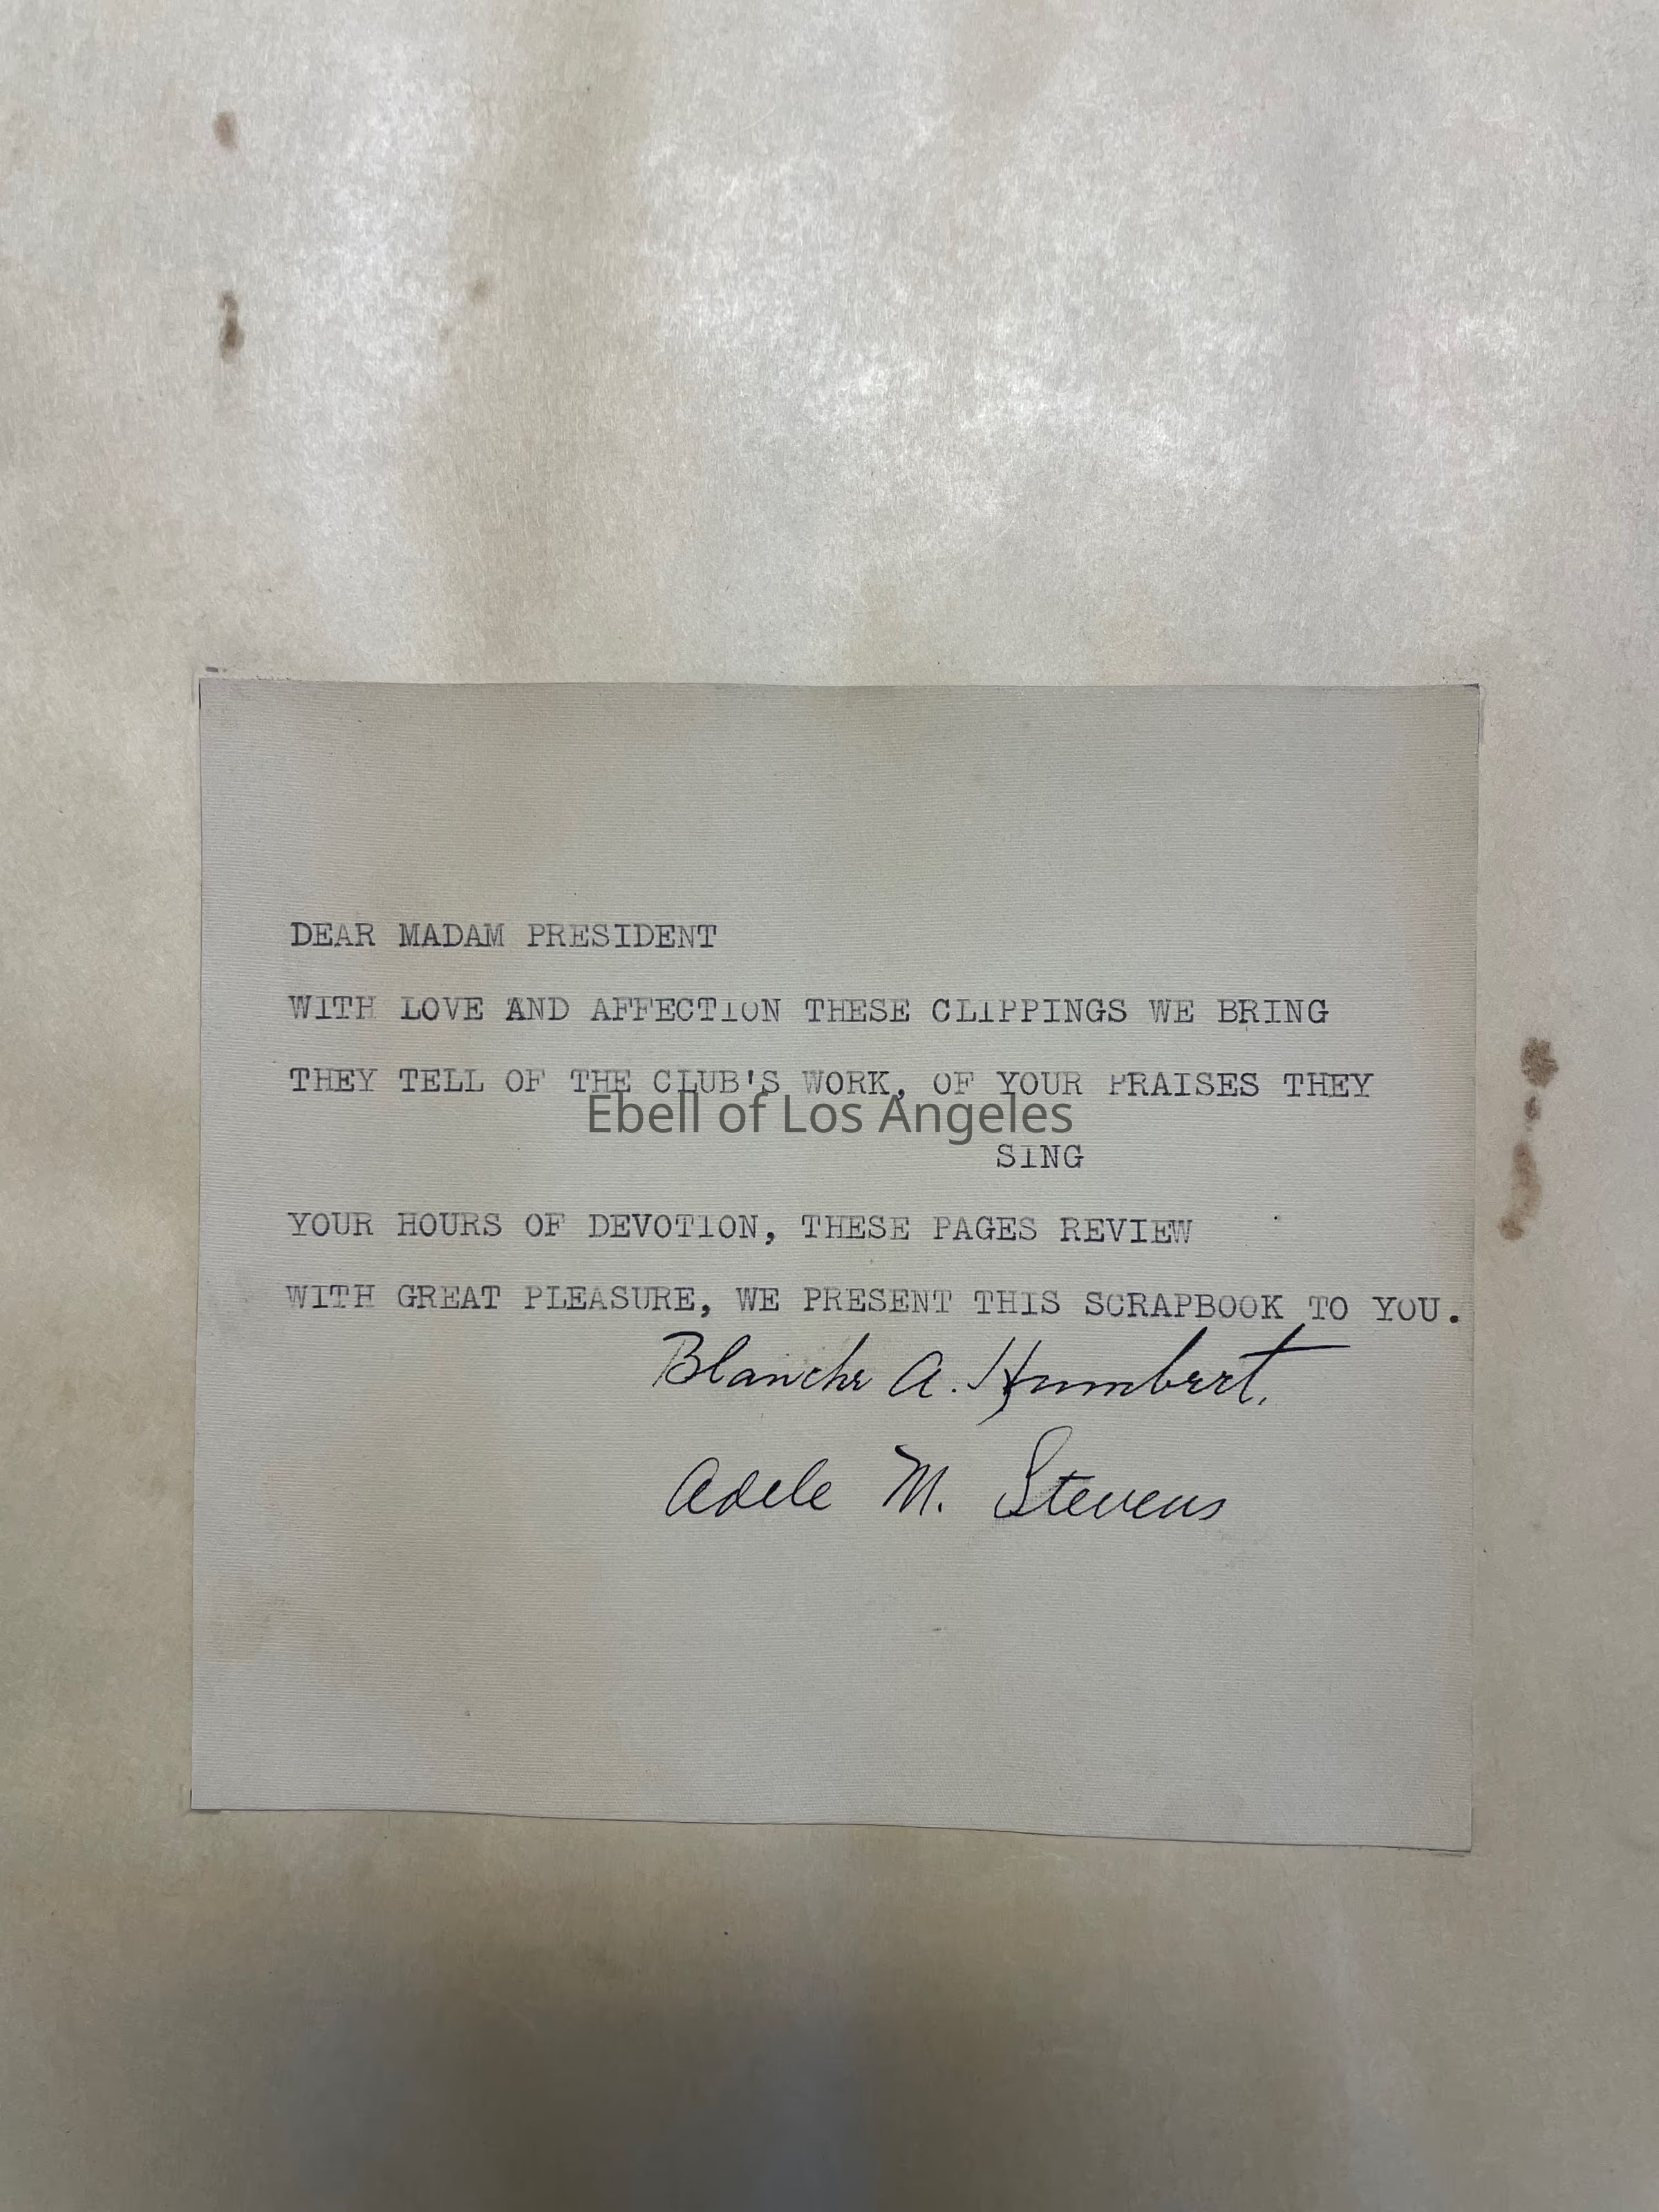 DEAR MADAM PRESIDENT
WITH LOVE AND AFFECTION THESE CLIPPINGS WE BRING
THEY TELL OF THE CLUB'S WORK, OF YOUR PRAISES THEY
Ebell of Los Angeles
SING
YOUR HOURS OF DEVOTION, THESE PAGES REVIEW
WITH GREAT PLEASURE, WE PRESENT THIS SCRAPBOOK TO YOU.
Blanche A. Humbert.
Adele M. Stevens